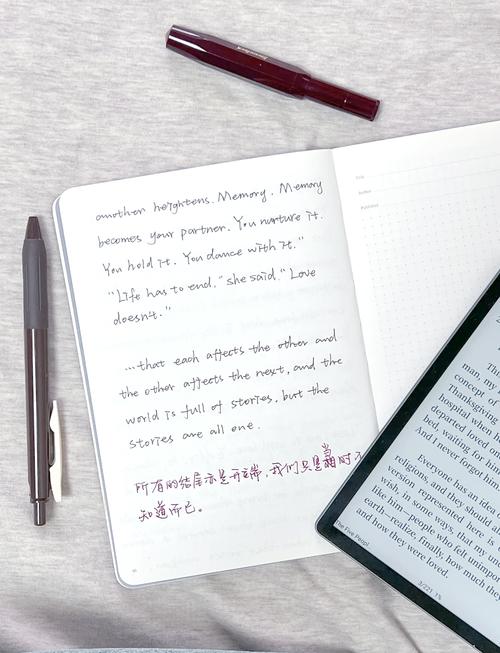 another heightens. Memory. Memory
becomes your partner. You nurture it.
You hold it. You dance with it."
"Life has to end." she said. "Love
doesn't."
...that each affects the other and
the other affects the next, and the
world is full of stories, but the
stories are all one.
所有的结尾亦是开端，我们只是当时不
知道而已。
man, my
concept of
Thanksgiving
hospital when
departed loved on
bed, waiting for him
And I never forgot him.
Everyone has an idea
religions, and these should
version represented here is
wish, in some ways, that my un
like him—people who felt unimpo
earth—realize, finally, how much they
and how they were loved.
The Five Peopl
3/221
1%